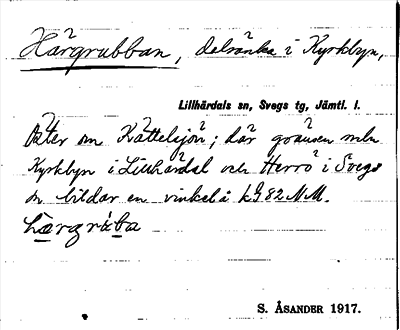 Hårgrubban, delsänka i Kyrkbyn,
Lillhärdals sn, Svegs tg, Jämtl. l.
Öster om Kättelsjön; där gränsen mln
Kyrkbyn i Lillhärdal och Herrö i Svegs
sn bildar en vinkel å kg 82 NM.